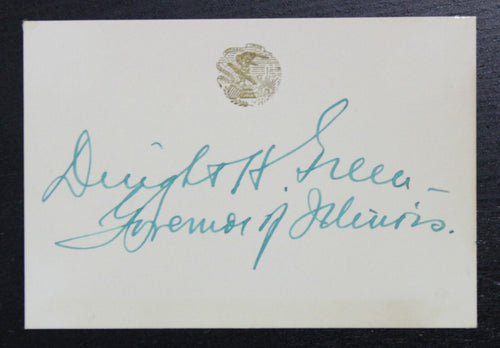 Dwight H. Green –
Governor of Illinois.